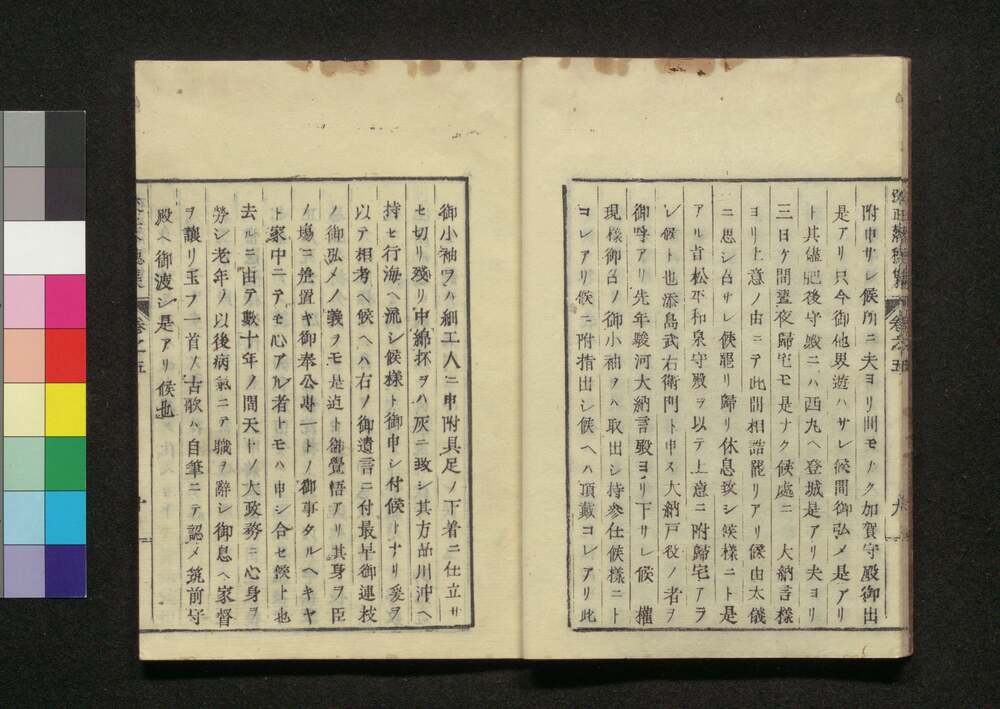 附申サレ候所ニ夫ヨリ間モナク加賀守殿御出
是アリ只今御他界遊ハサレ候間御弘メ是アリ
ト其儘肥後守殿ニハ西丸ヘ登城是アリ夫ヨリ
三日ケ間晝夜歸宅モ是ナク候處ニ 大納言様
ヨリ上意ノ由ニテ此間相詰罷リアリ候由太儀
ニ思シ召サレ候罷リ歸リ休息致シ候様ニト是
アル旨松平和泉守殿ヲ以テ上意ニ附歸宅アラ
レ候ト也添島武右衛門ト申ス大納戸役ノ者ヲ
御呼アリ先年駿河大納言殿ヨリ下サレ候 權
現様御召ノ御小袖ヲ取出シ持參仕候様ニト
コレアリ候ニ附指出シ候ヘハ頂戴コレアリ此
九
御小袖ヲハ細工人ニ申附具足ノ下着ニ仕立サ
セ切リ殘リ中綿抔ヲハ灰ニ致シ其方品川沖ヘ
持セ行海ヘ流シ候様ト御申シ付候トナリ爰ヲ
以テ相考ヘ候ヘハ右ノ御遺言ニ付最早御連枝
ノ御弘メノ義ヲモ是迄ト御覺悟アリ其身ヲ臣
ノ場ニ差置キ御奉公專一トノ御事タルヘキヤ
ト家中ニテモ心アル者トモハ申シ合セ候ト也
去ルニ由テ數十年ノ間天下ノ大政務ニ心身ヲ
勞シ老年ノ以後病氣ニテ職ヲ辭シ御息ヘ家督
ヲ讓リ玉フ一首ノ古歌ハ自筆ニテ認メ筑前守
殿ヘ御渡シ是アリ候也
卷之五
十